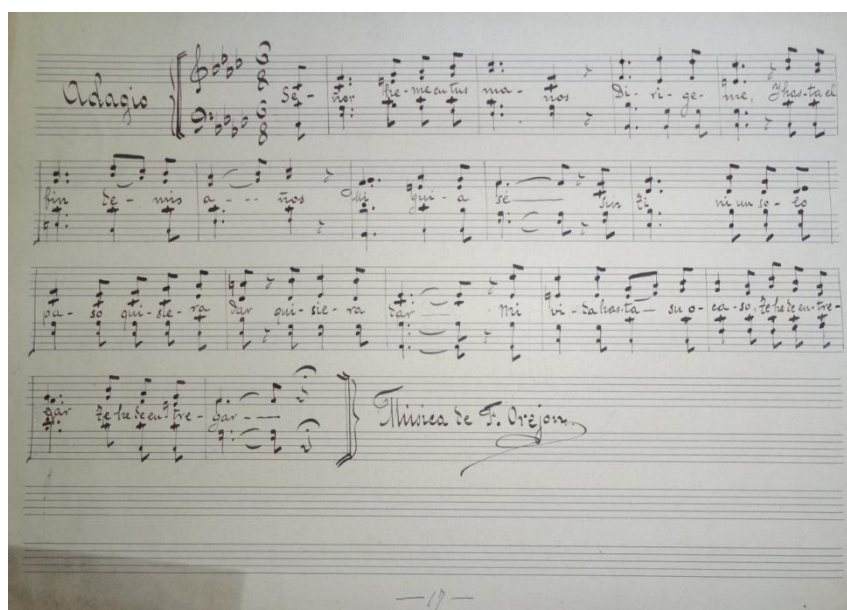 Adagio
6 8 6 8
Se- ñor he-me en tus ma- nos Di- ri- ge- me, Y has-ta el
fin de- mis a--- ños Mi gui-a sé— sin Ti ni un so-lo
pa- so qui-sie-ra dar qui-sie-ra dar— mi vi-da has-ta— su o- ca-so, Te he de en-tre-
gar Te he de en-tre- gar---
Música de F. Orejon
— 17 —